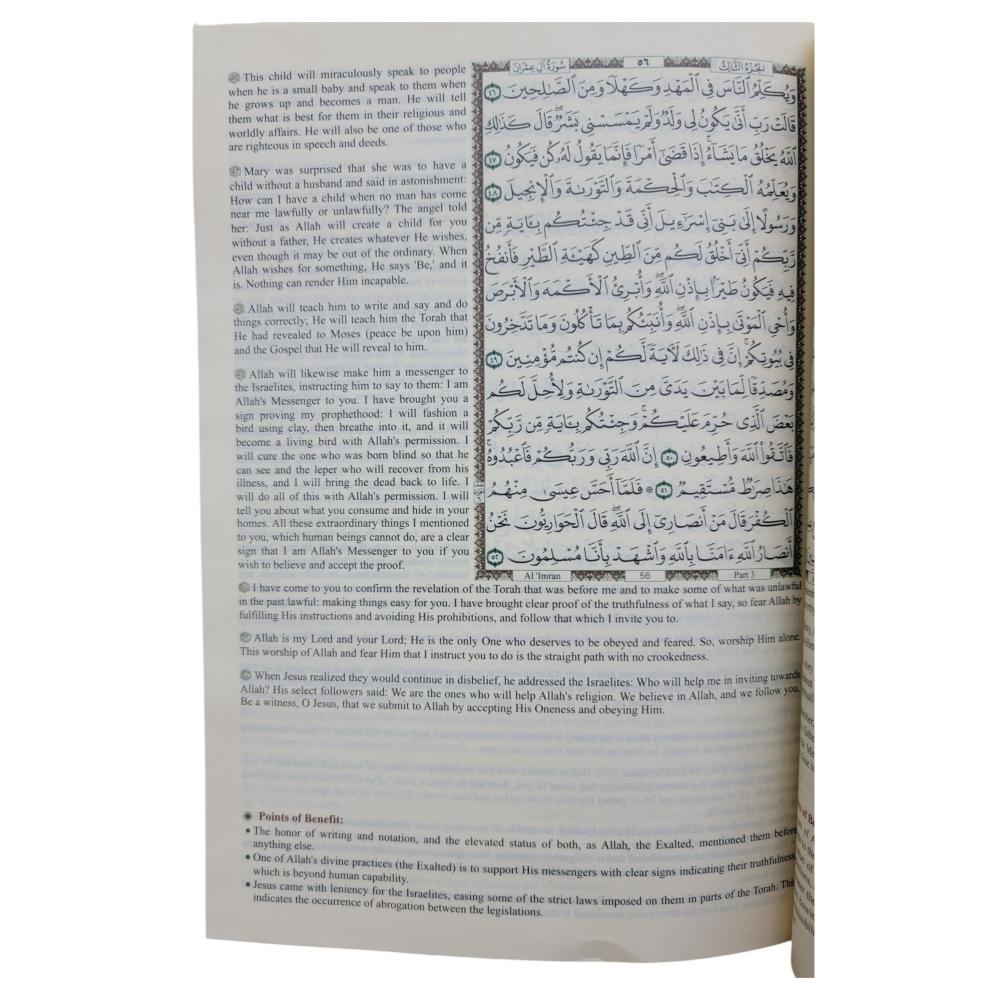 سُورَةُ آلِ عِمْرَانَ
٥٦
الجُزْءُ الثَّالِثُ
وَيُكَلِّمُ ٱلنَّاسَ فِى ٱلْمَهْدِ وَكَهْلًا وَمِنَ ٱلصَّٰلِحِينَ ٤٦
قَالَتْ رَبِّ أَنَّىٰ يَكُونُ لِى وَلَدٌ وَلَمْ يَمْسَسْنِى بَشَرٌ ۖ قَالَ كَذَٰلِكِ
ٱللَّهُ يَخْلُقُ مَا يَشَآءُ ۚ إِذَا قَضَىٰٓ أَمْرًا فَإِنَّمَا يَقُولُ لَهُۥ كُن فَيَكُونُ ٤٧
وَيُعَلِّمُهُ ٱلْكِتَٰبَ وَٱلْحِكْمَةَ وَٱلتَّوْرَىٰةَ وَٱلْإِنجِيلَ ٤٨
وَرَسُولًا إِلَىٰ بَنِىٓ إِسْرَٰٓءِيلَ أَنِّى قَدْ جِئْتُكُم بِـَٔايَةٍ مِّن
رَّبِّكُمْ أَنِّىٓ أَخْلُقُ لَكُم مِّنَ ٱلطِّينِ كَهَيْـَٔةِ ٱلطَّيْرِ فَأَنفُخُ
فِيهِ فَيَكُونُ طَيْرًۢا بِإِذْنِ ٱللَّهِ ۖ وَأُبْرِئُ ٱلْأَكْمَهَ وَٱلْأَبْرَصَ
وَأُحْىِ ٱلْمَوْتَىٰ بِإِذْنِ ٱللَّهِ ۖ وَأُنَبِّئُكُم بِمَا تَأْكُلُونَ وَمَا تَدَّخِرُونَ
فِى بُيُوتِكُمْ ۚ إِنَّ فِى ذَٰلِكَ لَـَٔايَةً لَّكُمْ إِن كُنتُم مُّؤْمِنِينَ ٤٩
وَمُصَدِّقًا لِّمَا بَيْنَ يَدَىَّ مِنَ ٱلتَّوْرَىٰةِ وَلِأُحِلَّ لَكُم
بَعْضَ ٱلَّذِى حُرِّمَ عَلَيْكُمْ ۚ وَجِئْتُكُم بِـَٔايَةٍ مِّن رَّبِّكُمْ
فَٱتَّقُوا۟ ٱللَّهَ وَأَطِيعُونِ ٥٠ إِنَّ ٱللَّهَ رَبِّى وَرَبُّكُمْ فَٱعْبُدُوهُ ۗ
هَٰذَا صِرَٰطٌ مُّسْتَقِيمٌ ٥١ ۞ فَلَمَّآ أَحَسَّ عِيسَىٰ مِنْهُمُ
ٱلْكُفْرَ قَالَ مَنْ أَنصَارِىٓ إِلَى ٱللَّهِ ۖ قَالَ ٱلْحَوَارِيُّونَ نَحْنُ
أَنصَارُ ٱللَّهِ ءَامَنَّا بِٱللَّهِ وَٱشْهَدْ بِأَنَّا مُسْلِمُونَ ٥٢
Al 'Imran
56
Part 3
46 This child will miraculously speak to people
when he is a small baby and speak to them when
he grows up and becomes a man. He will tell
them what is best for them in their religious and
worldly affairs. He will also be one of those who
are righteous in speech and deeds.
47 Mary was surprised that she was to have a
child without a husband and said in astonishment:
How can I have a child when no man has come
near me lawfully or unlawfully? The angel told
her: Just as Allah will create a child for you
without a father, He creates whatever He wishes,
even though it may be out of the ordinary. When
Allah wishes for something, He says 'Be,' and it
is. Nothing can render Him incapable.
48 Allah will teach him to write and say and do
things correctly; He will teach him the Torah that
He had revealed to Moses (peace be upon him)
and the Gospel that He will reveal to him.
49 Allah will likewise make him a messenger to
the Israelites, instructing him to say to them: I am
Allah's Messenger to you. I have brought you a
sign proving my prophethood: I will fashion a
bird using clay, then breathe into it, and it will
become a living bird with Allah's permission. I
will cure the one who was born blind so that he
can see and the leper who will recover from his
illness, and I will bring the dead back to life. I
will do all of this with Allah's permission. I will
tell you about what you consume and hide in your
homes. All these extraordinary things I mentioned
to you, which human beings cannot do, are a clear
sign that I am Allah's Messenger to you if you
wish to believe and accept the proof.
50 I have come to you to confirm the revelation of the Torah that was before me and to make some of what was unlawful
in the past lawful: making things easy for you. I have brought clear proof of the truthfulness of what I say, so fear Allah by
fulfilling His instructions and avoiding His prohibitions, and follow that which I invite you to.
51 Allah is my Lord and your Lord; He is the only One who deserves to be obeyed and feared. So, worship Him alone.
This worship of Allah and fear Him that I instruct you to do is the straight path with no crookedness.
52 When Jesus realized they would continue in disbelief, he addressed the Israelites: Who will help me in inviting towards
Allah? His select followers said: We are the ones who will help Allah's religion. We believe in Allah, and we follow you.
Be a witness, O Jesus, that we submit to Allah by accepting His Oneness and obeying Him.
Points of Benefit:
• The honor of writing and notation, and the elevated status of both, as Allah, the Exalted, mentioned them before
anything else.
• One of Allah's divine practices (the Exalted) is to support His messengers with clear signs indicating their truthfulness,
which is beyond human capability.
• Jesus came with leniency for the Israelites, easing some of the strict laws imposed on them in parts of the Torah. This
indicates the occurrence of abrogation between the legislations.